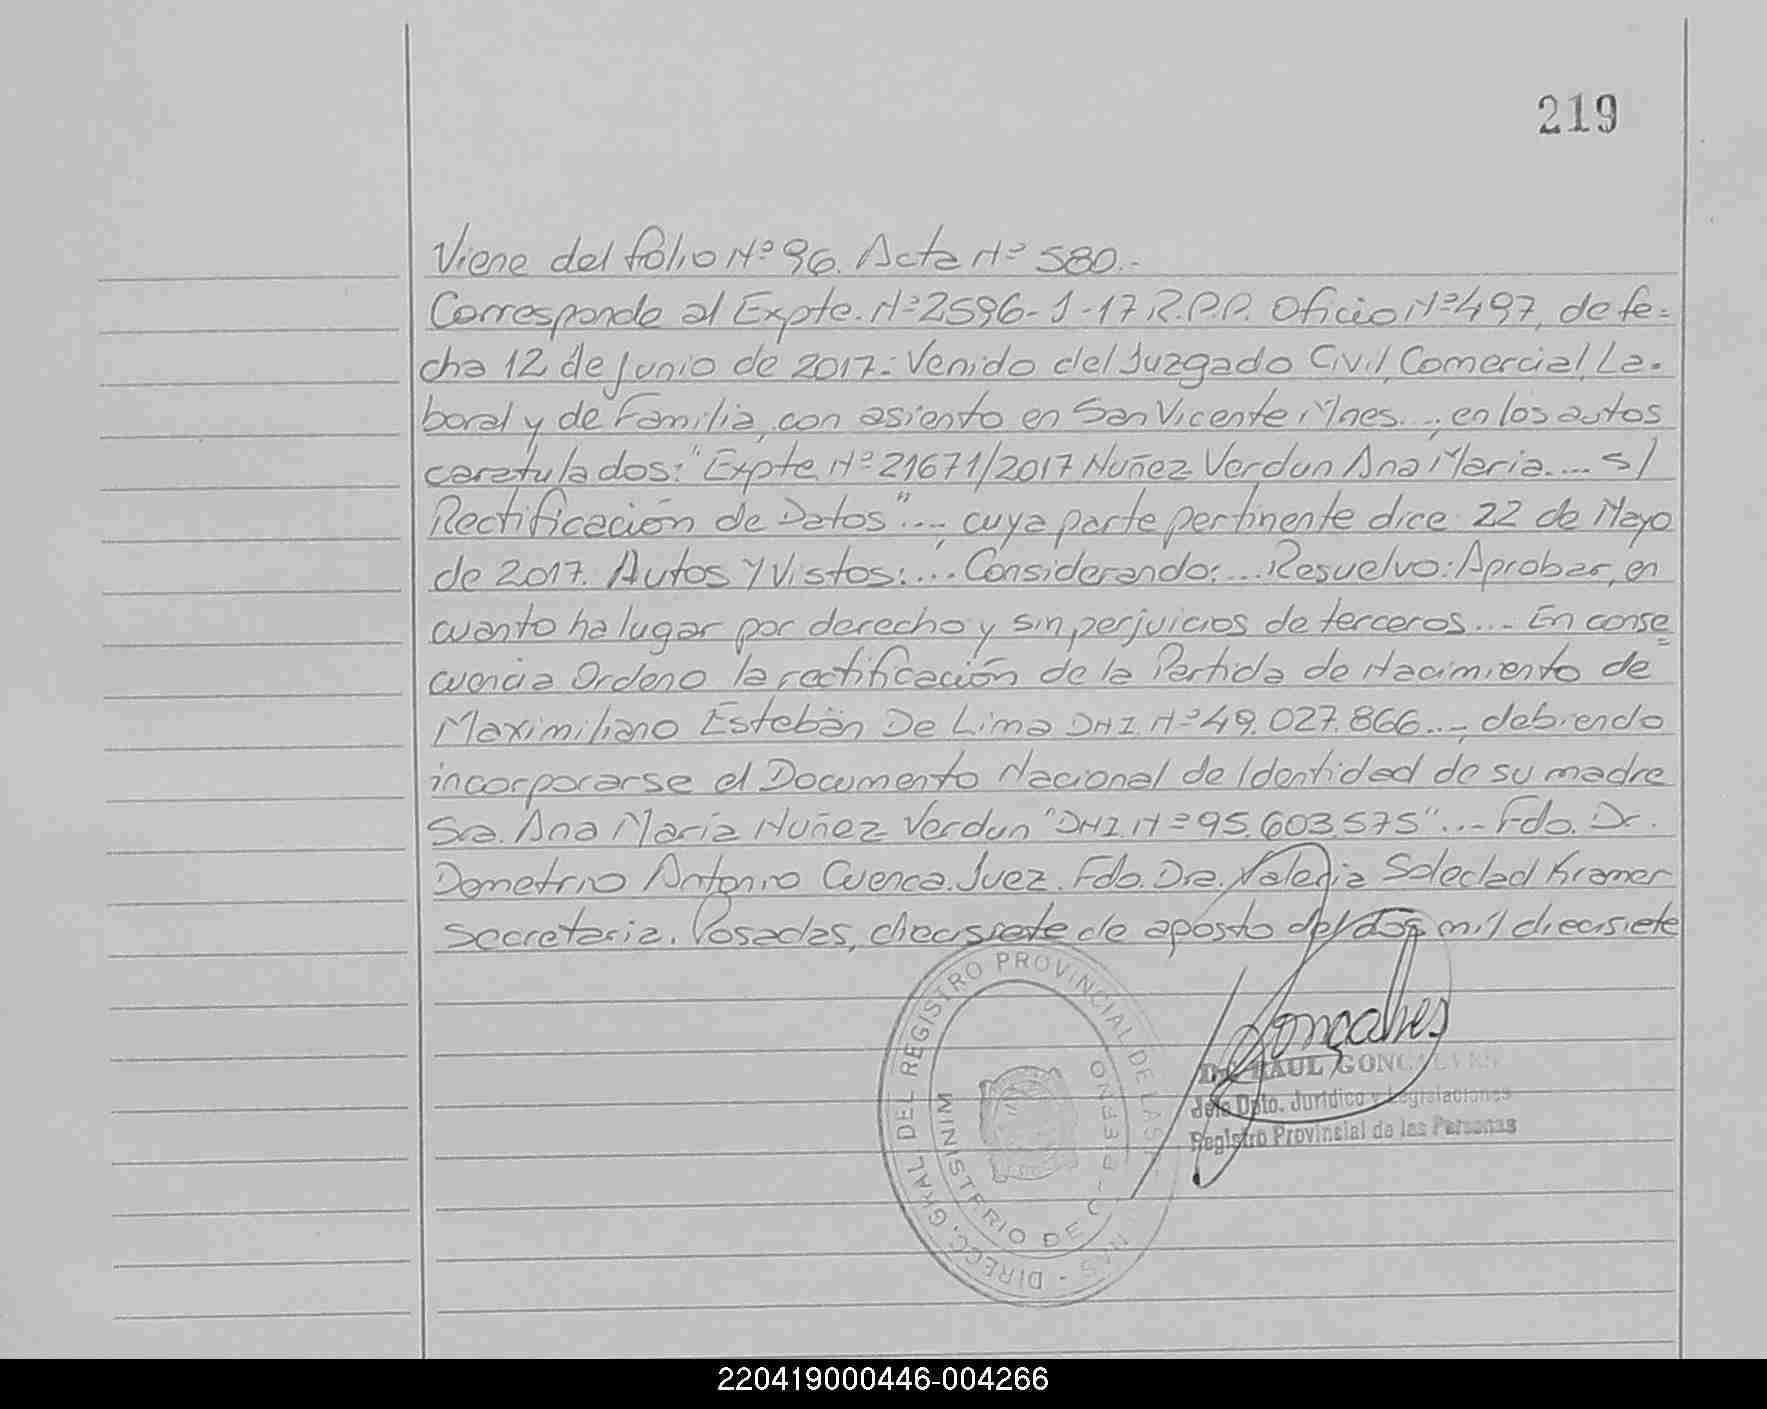 219
Viene del folio Nº 96. Acta Nº 580.-
Corresponde al Expte. Nº 2596-1-17 R.P.P. Oficio Nº 497, de fe=
cha 12 de Junio de 2017.- Venido del Juzgado Civil, Comercial, La-
boral y de Familia, con asiento en San Vicente Mnes..., en los autos
caratulados: "Expte. Nº 21671/2017 Nuñez Verdun Ana Maria.... S/
Rectificación de Datos"..., cuya parte pertinente dice 22 de Mayo
de 2017. Autos Y Vistos:... Considerando:... Resuelvo: Aprobar, en
cuanto ha lugar por derecho y sin perjuicios de terceros... En conse=
cuencia Ordeno la rectificación de la Partida de Nacimiento de
Maximiliano Estebán De Lima DNI. Nº 49.027.866..., debiendo
incorporarse el Documento Nacional de Identidad de su madre
Sra. Ana María Nuñez Verdun "DNI. Nº 95.603.575"... Fdo. Dr.
Demetrio Antonio Cuenca. Juez. Fdo. Dra. Valeria Soledad Kramer
Secretaria. Posadas, diecisiete de agosto del dos mil diecisiete
DIRECC. GRAL DEL REGISTRO PROVINCIAL DE LAS
MINISTERIO DE
Gonçalves
Dr. RAUL GONCALVES
Jefe Dpto. Jurídico y Legislaciones
Registro Provincial de las Personas
220419000446-004266